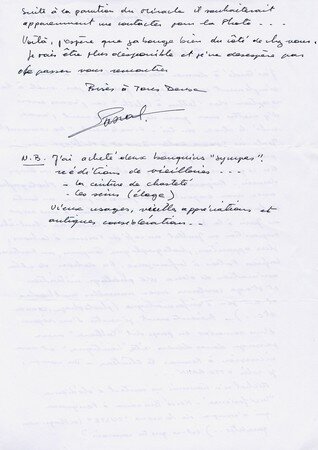 Suite à la parution du … il souhaiterait
apparemment me contacter pour la Photo ...
Voilà, j'espère que ça bouge bien du côté de chez vous.
Je vais être plus disponible et je ne désespère pas
de passer vous rencontrer
Bises à Tous Deux
Pascal.
N.B. J'ai acheté deux bouquins "sympas",
rééditions de vieilleries ...
- la ceinture de chasteté
- les seins (éloge)
Vieux usages, vieilles appréciations et
antiques considérations..